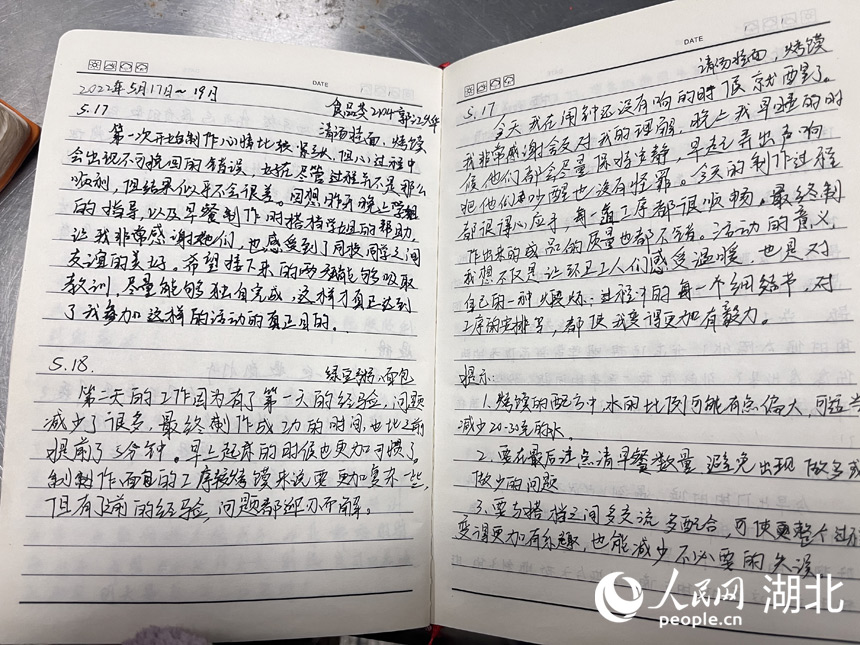 DATE
2022年5月17日~19日
5.17 食品类2104 郭
清汤挂面、烤馍
第一次开始制作心情比较紧张,担心过程中
会出现不可挽回的错误,好在尽管过程并不是那么
顺利,但结果似乎不会很差。回想昨天晚上学姐
的指导,以及早餐制作时搭档学姐的帮助,
让我非常感谢她们,也感受到了同校同学之间
友谊的美好。希望接下来的两天能够吸取
教训,尽量能够独自完成,这样才真正达到
了我参加这样的活动的真正目的。
5.18. 绿豆粥、面包
第二天的工作因为有了第一天的经验,问题
减少了很多,最终制作成功的时间,也比之前
提前了5分钟。早上起床的时候也更加习惯了
制作面包的工序较烤馍来说要更加复杂一些,
但有了前的经验,问题都迎刃而解。
DATE
5.17 清汤挂面,烤馍
今天我在闹钟还没有响的时候就醒了。
我非常感谢舍友对我的理解,晚上我早睡的时
候他们都会尽量保持安静,早起弄出声响
把他们吵醒也没有怪罪。今天的制作过程
都很得心应手,每一道工序都很顺畅。最终制
作出来的成品的质量也都不错。活动的意义,
我想不仅是让环卫工人们感受温暖,也是对
自己的一种锻炼:过程中的每一个细节,对
工序的安排等,都使我变得更加有毅力。
提示:
1.烤馍的配方中,水的比例可能有点偏大,可适当
减少20-30克的水。
2.要在最后注点清早餐数量,避免出现做多或
做少的问题
3.要与搭档之间多交流多配合,可使整个过程
变得更加有乐趣,也能减少不必要的失误
人民网 湖北
people.cn